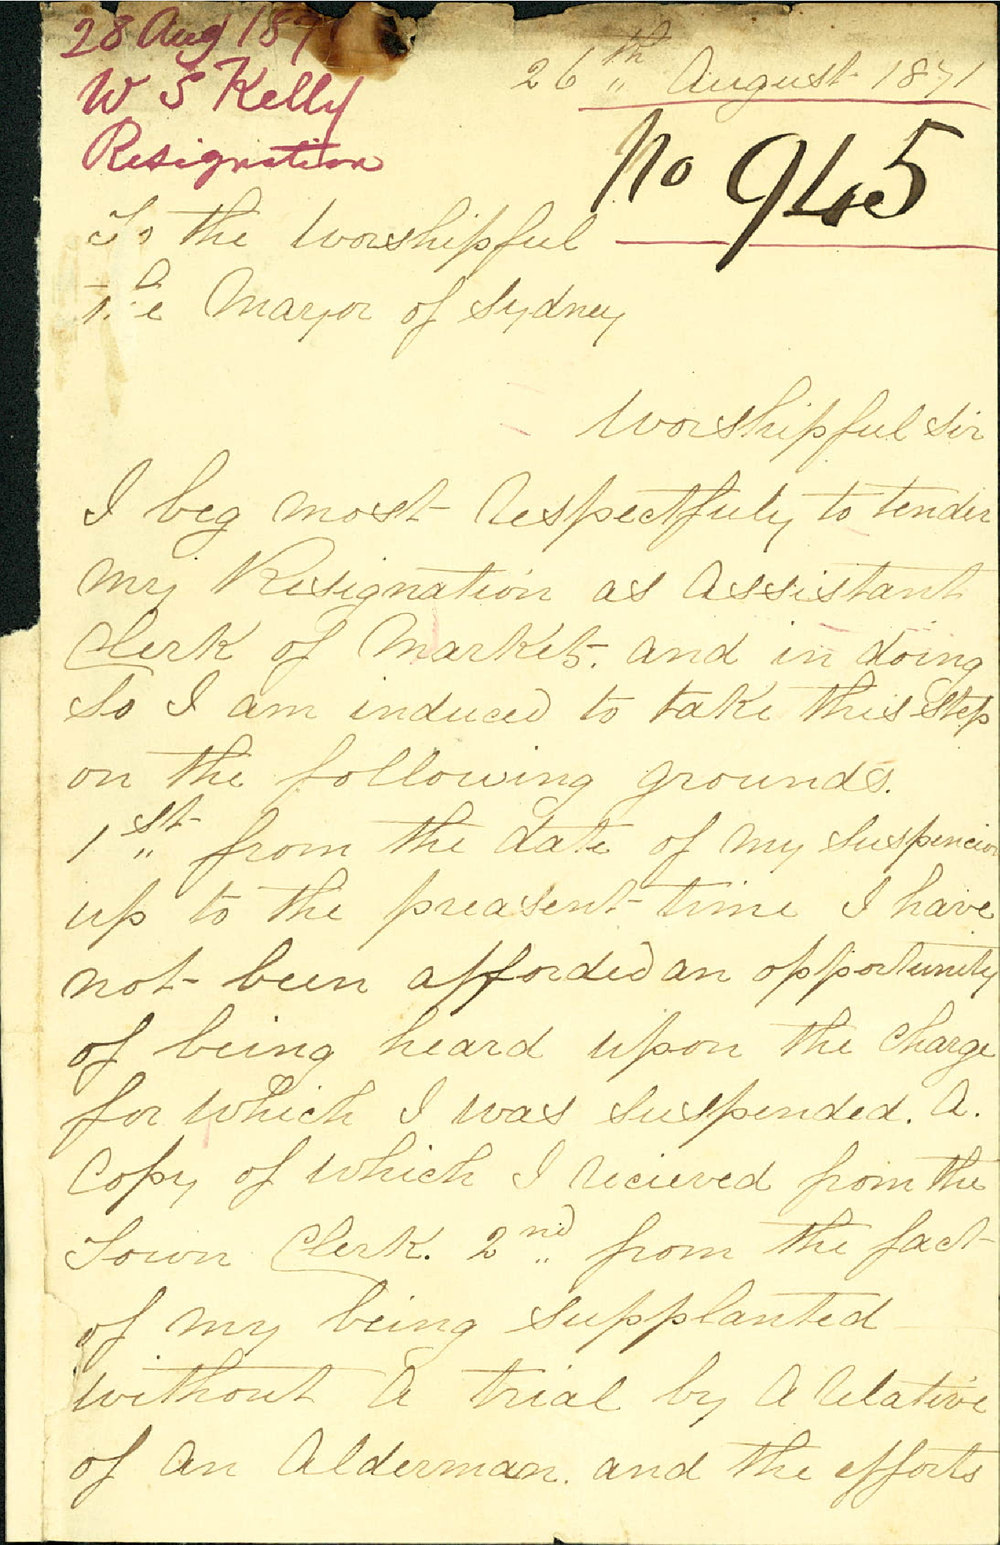 28 Aug 187
W S Kelly
Resignation
26th August 1871
No 945
To the Worshipful
The Mayor of Sydney
Worshipful Sir
I beg most Respectfuly to tender
my Resignation as Assistant
Clerk of Markets. and in doing
So I am induced to take this Step
on the following grounds.
1st from the date of my Suspencion
up to the preasent time I have
not been afforded an opportunity
of being heard upon the Charge
for which I was Suspended. A.
Copy of which I recieved from the
Town Clerk. 2nd from the fact
of my being Supplanted
without A trial by A Relative
of An Alderman. and the efforts